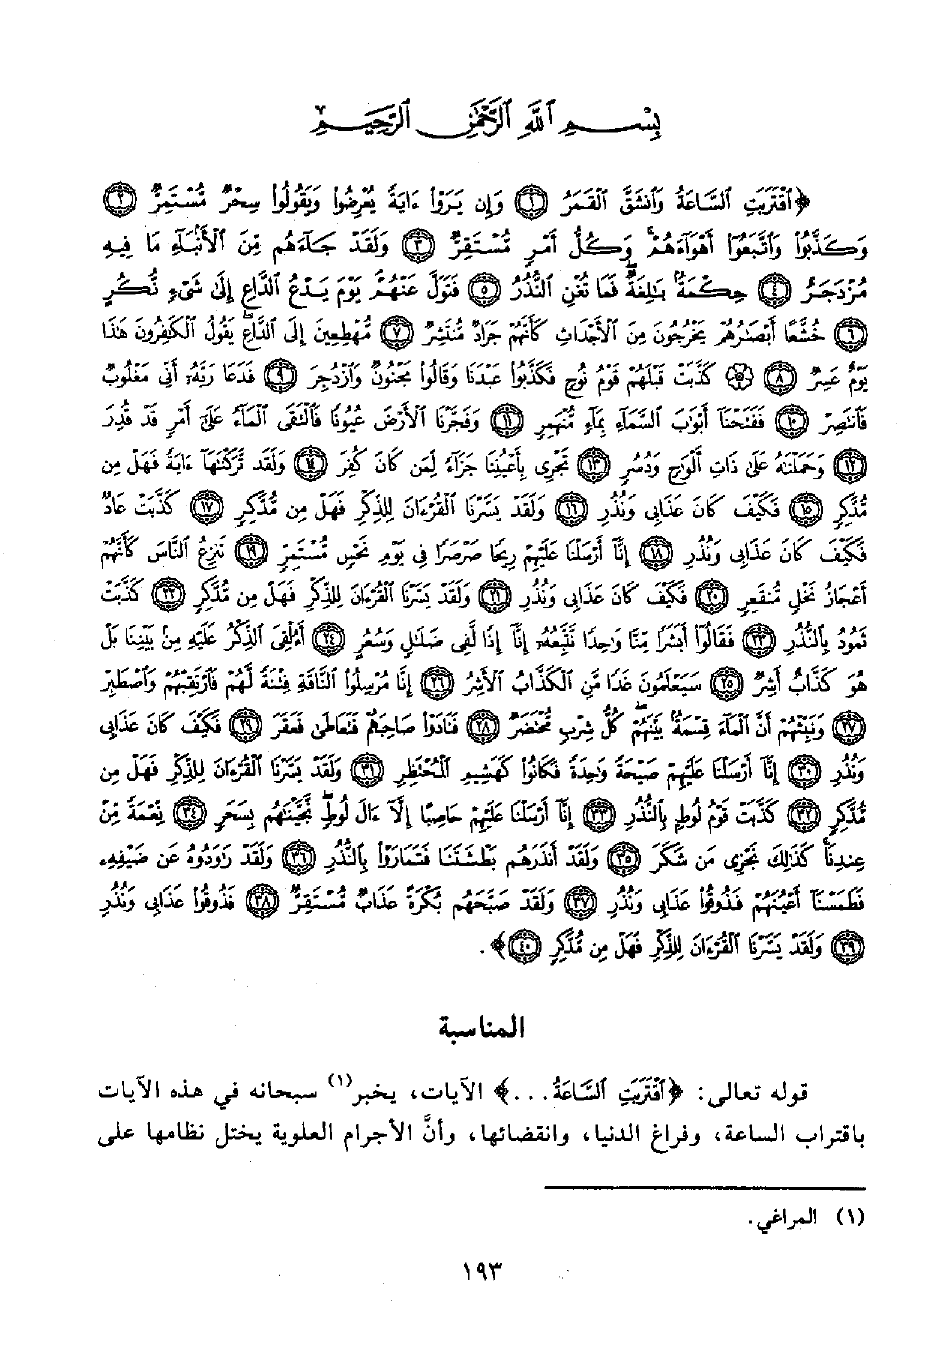 بِسْمِ ٱللَّهِ ٱلرَّحْمَٰنِ ٱلرَّحِيمِ
﴿ٱقْتَرَبَتِ ٱلسَّاعَةُ وَٱنشَقَّ ٱلْقَمَرُ ١ وَإِن يَرَوْا۟ ءَايَةً يُعْرِضُوا۟ وَيَقُولُوا۟ سِحْرٌ مُّسْتَمِرٌّ ٢
وَكَذَّبُوا۟ وَٱتَّبَعُوٓا۟ أَهْوَآءَهُمْ ۚ وَكُلُّ أَمْرٍ مُّسْتَقِرٌّ ٣ وَلَقَدْ جَآءَهُم مِّنَ ٱلْأَنۢبَآءِ مَا فِيهِ
مُزْدَجَرٌ ٤ حِكْمَةٌۢ بَٰلِغَةٌ ۖ فَمَا تُغْنِ ٱلنُّذُرُ ٥ فَتَوَلَّ عَنْهُمْ ۘ يَوْمَ يَدْعُ ٱلدَّاعِ إِلَىٰ شَىْءٍ نُّكُرٍ
٦ خُشَّعًا أَبْصَٰرُهُمْ يَخْرُجُونَ مِنَ ٱلْأَجْدَاثِ كَأَنَّهُمْ جَرَادٌ مُّنتَشِرٌ ٧ مُّهْطِعِينَ إِلَى ٱلدَّاعِ ۖ يَقُولُ ٱلْكَٰفِرُونَ هَٰذَا
يَوْمٌ عَسِرٌ ٨ ۞ كَذَّبَتْ قَبْلَهُمْ قَوْمُ نُوحٍ فَكَذَّبُوا۟ عَبْدَنَا وَقَالُوا۟ مَجْنُونٌ وَٱزْدُجِرَ ٩ فَدَعَا رَبَّهُۥٓ أَنِّى مَغْلُوبٌ
فَٱنتَصِرْ ١٠ فَفَتَحْنَآ أَبْوَٰبَ ٱلسَّمَآءِ بِمَآءٍ مُّنْهَمِرٍ ١١ وَفَجَّرْنَا ٱلْأَرْضَ عُيُونًا فَٱلْتَقَى ٱلْمَآءُ عَلَىٰٓ أَمْرٍ قَدْ قُدِرَ
١٢ وَحَمَلْنَٰهُ عَلَىٰ ذَاتِ أَلْوَٰحٍ وَدُسُرٍ ١٣ تَجْرِى بِأَعْيُنِنَا جَزَآءً لِّمَن كَانَ كُفِرَ ١٤ وَلَقَد تَّرَكْنَٰهَآ ءَايَةً فَهَلْ مِن
مُّدَّكِرٍ ١٥ فَكَيْفَ كَانَ عَذَابِى وَنُذُرِ ١٦ وَلَقَدْ يَسَّرْنَا ٱلْقُرْءَانَ لِلذِّكْرِ فَهَلْ مِن مُّدَّكِرٍ ١٧ كَذَّبَتْ عَادٌ
فَكَيْفَ كَانَ عَذَابِى وَنُذُرِ ١٨ إِنَّآ أَرْسَلْنَا عَلَيْهِمْ رِيحًا صَرْصَرًا فِى يَوْمِ نَحْسٍ مُّسْتَمِرٍّ ١٩ تَنزِعُ ٱلنَّاسَ كَأَنَّهُمْ
أَعْجَازُ نَخْلٍ مُّنقَعِرٍ ٢٠ فَكَيْفَ كَانَ عَذَابِى وَنُذُرِ ٢١ وَلَقَدْ يَسَّرْنَا ٱلْقُرْءَانَ لِلذِّكْرِ فَهَلْ مِن مُّدَّكِرٍ ٢٢ كَذَّبَتْ
ثَمُودُ بِٱلنُّذُرِ ٢٣ فَقَالُوٓا۟ أَبَشَرًا مِّنَّا وَٰحِدًا نَّتَّبِعُهُۥٓ إِنَّآ إِذًا لَّفِى ضَلَٰلٍ وَسُعُرٍ ٢٤ أَءُلْقِىَ ٱلذِّكْرُ عَلَيْهِ مِنۢ بَيْنِنَا بَلْ
هُوَ كَذَّابٌ أَشِرٌ ٢٥ سَيَعْلَمُونَ غَدًا مَّنِ ٱلْكَذَّابُ ٱلْأَشِرُ ٢٦ إِنَّا مُرْسِلُوا۟ ٱلنَّاقَةِ فِتْنَةً لَّهُمْ فَٱرْتَقِبْهُمْ وَٱصْطَبِرْ
٢٧ وَنَبِّئْهُمْ أَنَّ ٱلْمَآءَ قِسْمَةٌۢ بَيْنَهُمْ ۖ كُلُّ شِرْبٍ مُّحْتَضَرٌ ٢٨ فَنَادَوْا۟ صَاحِبَهُمْ فَتَعَاطَىٰ فَعَقَرَ ٢٩ فَكَيْفَ كَانَ عَذَابِى
وَنُذُرِ ٣٠ إِنَّآ أَرْسَلْنَا عَلَيْهِمْ صَيْحَةً وَٰحِدَةً فَكَانُوا۟ كَهَشِيمِ ٱلْمُحْتَظِرِ ٣١ وَلَقَدْ يَسَّرْنَا ٱلْقُرْءَانَ لِلذِّكْرِ فَهَلْ مِن
مُّدَّكِرٍ ٣٢ كَذَّبَتْ قَوْمُ لُوطٍۭ بِٱلنُّذُرِ ٣٣ إِنَّآ أَرْسَلْنَا عَلَيْهِمْ حَاصِبًا إِلَّآ ءَالَ لُوطٍ ۖ نَّجَّيْنَٰهُم بِسَحَرٍ ٣٤ نِّعْمَةً مِّنْ
عِندِنَا ۚ كَذَٰلِكَ نَجْزِى مَن شَكَرَ ٣٥ وَلَقَدْ أَنذَرَهُم بَطْشَتَنَا فَتَمَارَوْا۟ بِٱلنُّذُرِ ٣٦ وَلَقَدْ رَٰوَدُوهُ عَن ضَيْفِهِۦ
فَطَمَسْنَآ أَعْيُنَهُمْ فَذُوقُوا۟ عَذَابِى وَنُذُرِ ٣٧ وَلَقَدْ صَبَّحَهُم بُكْرَةً عَذَابٌ مُّسْتَقِرٌّ ٣٨ فَذُوقُوا۟ عَذَابِى وَنُذُرِ
٣٩ وَلَقَدْ يَسَّرْنَا ٱلْقُرْءَانَ لِلذِّكْرِ فَهَلْ مِن مُّدَّكِرٍ ٤٠﴾.
المناسبة
قوله تعالى: ﴿ٱقْتَرَبَتِ ٱلسَّاعَةُ...﴾ الآيات، يخبر(١) سبحانه في هذه الآيات
باقتراب الساعة، وفراغ الدنيا، وانقضائها، وأنَّ الأجرام العلوية يختل نظامها على
(١) المراغي.
١٩٣